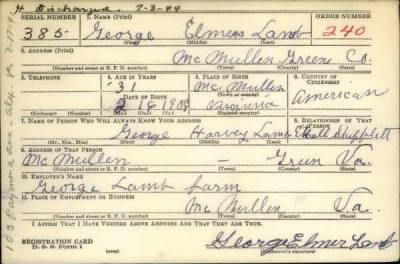 H. Discharged. 7-3-44
SERIAL NUMBER 1. NAME (Print) ORDER NUMBER
385 George Elmer Lamb 240
(First) (Middle) (Last)
2. ADDRESS (Print)
McMullen Greene Co.
(Number and street or R. F. D. number) (Town) (County) (State)
3. TELEPHONE 4. AGE IN YEARS 5. PLACE OF BIRTH 6. COUNTRY OF CITIZENSHIP
31 McMullen
(Town or county)
DATE OF BIRTH
16 1909 Virginia American
(Exchange) (Number) (Mo.) (Day) (Yr.) (State or country)
7. NAME OF PERSON WHO WILL ALWAYS KNOW YOUR ADDRESS 8. RELATIONSHIP OF THAT PERSON
George Harvey Lamb
(Mr., Mrs., Miss) (First) (Middle) (Last)
9. ADDRESS OF THAT PERSON
McMullen – Green Va.
(Number and street or R. F. D. number) (Town) (County) (State)
10. EMPLOYER'S NAME
George Lamb farm
11. PLACE OF EMPLOYMENT OR BUSINESS
McMullen Va.
(Number and street or R. F. D. number) (Town) (County) (State)
I AFFIRM THAT I HAVE VERIFIED ABOVE ANSWERS AND THAT THEY ARE TRUE.
REGISTRATION CARD
D. S. S. Form 1
George Elmer Lamb
(Registrant's signature)